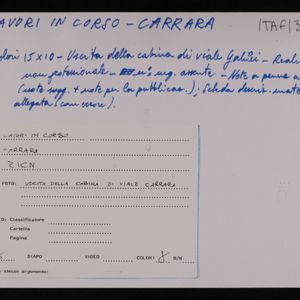 LAVORI IN CORSO - CARRARA
/TAF/3
15x10 - Uscita della cabina di viale Galilei -
non professionale - n° neg. assente - Note a penna
(sogg. + note per la pubblicaz.); Scheda descriz.
allegata (con errori).
LAVORI IN CORSO
CARRARA
ZICN
FOTO: USCITA DELLA CABINA DI VIALE CARRARA
FOTO: Classificatore
Cartella
Pagina
DIAPO VIDEO COLORI X B/N
o stesso argomento: